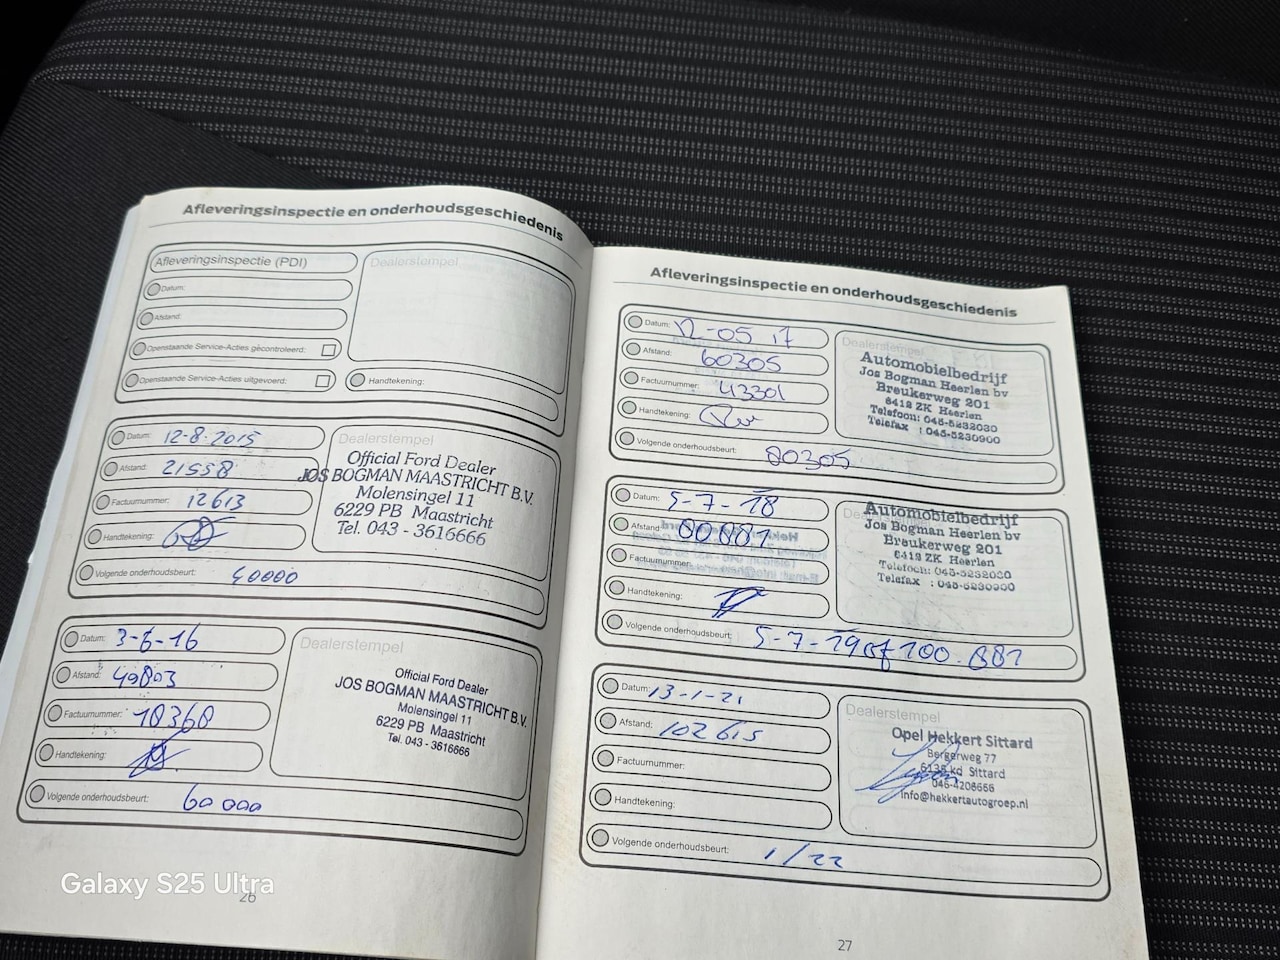 Afleveringsinspectie en onderhoudsgeschiedenis
Afleveringsinspectie (PDI)
Datum:
Afstand:
Openstaande Service-Acties gecontroleerd:
Openstaande Service-Acties uitgevoerd:
Handtekening:
Dealerstempel
Datum: 12-8-2015
Afstand: 21558
Factuurnummer: 12613
Handtekening:
Volgende onderhoudsbeurt: 40000
Dealerstempel
Official Ford Dealer
JOS BOGMAN MAASTRICHT B.V.
Molensingel 11
6229 PB Maastricht
Tel. 043 - 3616666
Datum: 3-6-16
Afstand: 49803
Factuurnummer: 18368
Handtekening:
Volgende onderhoudsbeurt: 60000
Dealerstempel
Official Ford Dealer
JOS BOGMAN MAASTRICHT B.V.
Molensingel 11
6229 PB Maastricht
Tel. 043 - 3616666
Galaxy S25 Ultra
26
Afleveringsinspectie en onderhoudsgeschiedenis
Datum: 12-05 17
Afstand: 60305
Factuurnummer: 43301
Handtekening:
Volgende onderhoudsbeurt: 80305
Dealerstempel
Automobielbedrijf
Jos Bogman Heerlen bv
Breukerweg 201
6412 ZK Heerlen
Telefoon: 045-5232030
Telefax : 045-5230900
Datum: 5-7-18
Afstand: 80881
Factuurnummer:
Handtekening:
Volgende onderhoudsbeurt: 5-7-19 of 100.881
Automobielbedrijf
Jos Bogman Heerlen bv
Breukerweg 201
6412 ZK Heerlen
Telefoon: 045-5232030
Telefax : 045-5230900
Datum: 13-1-21
Afstand: 102615
Factuurnummer:
Handtekening:
Volgende onderhoudsbeurt: 1/22
Dealerstempel
Opel Hekkert Sittard
Bergerweg 77
6135 kd Sittard
046-4206656
info@hekkertautogroep.nl
27